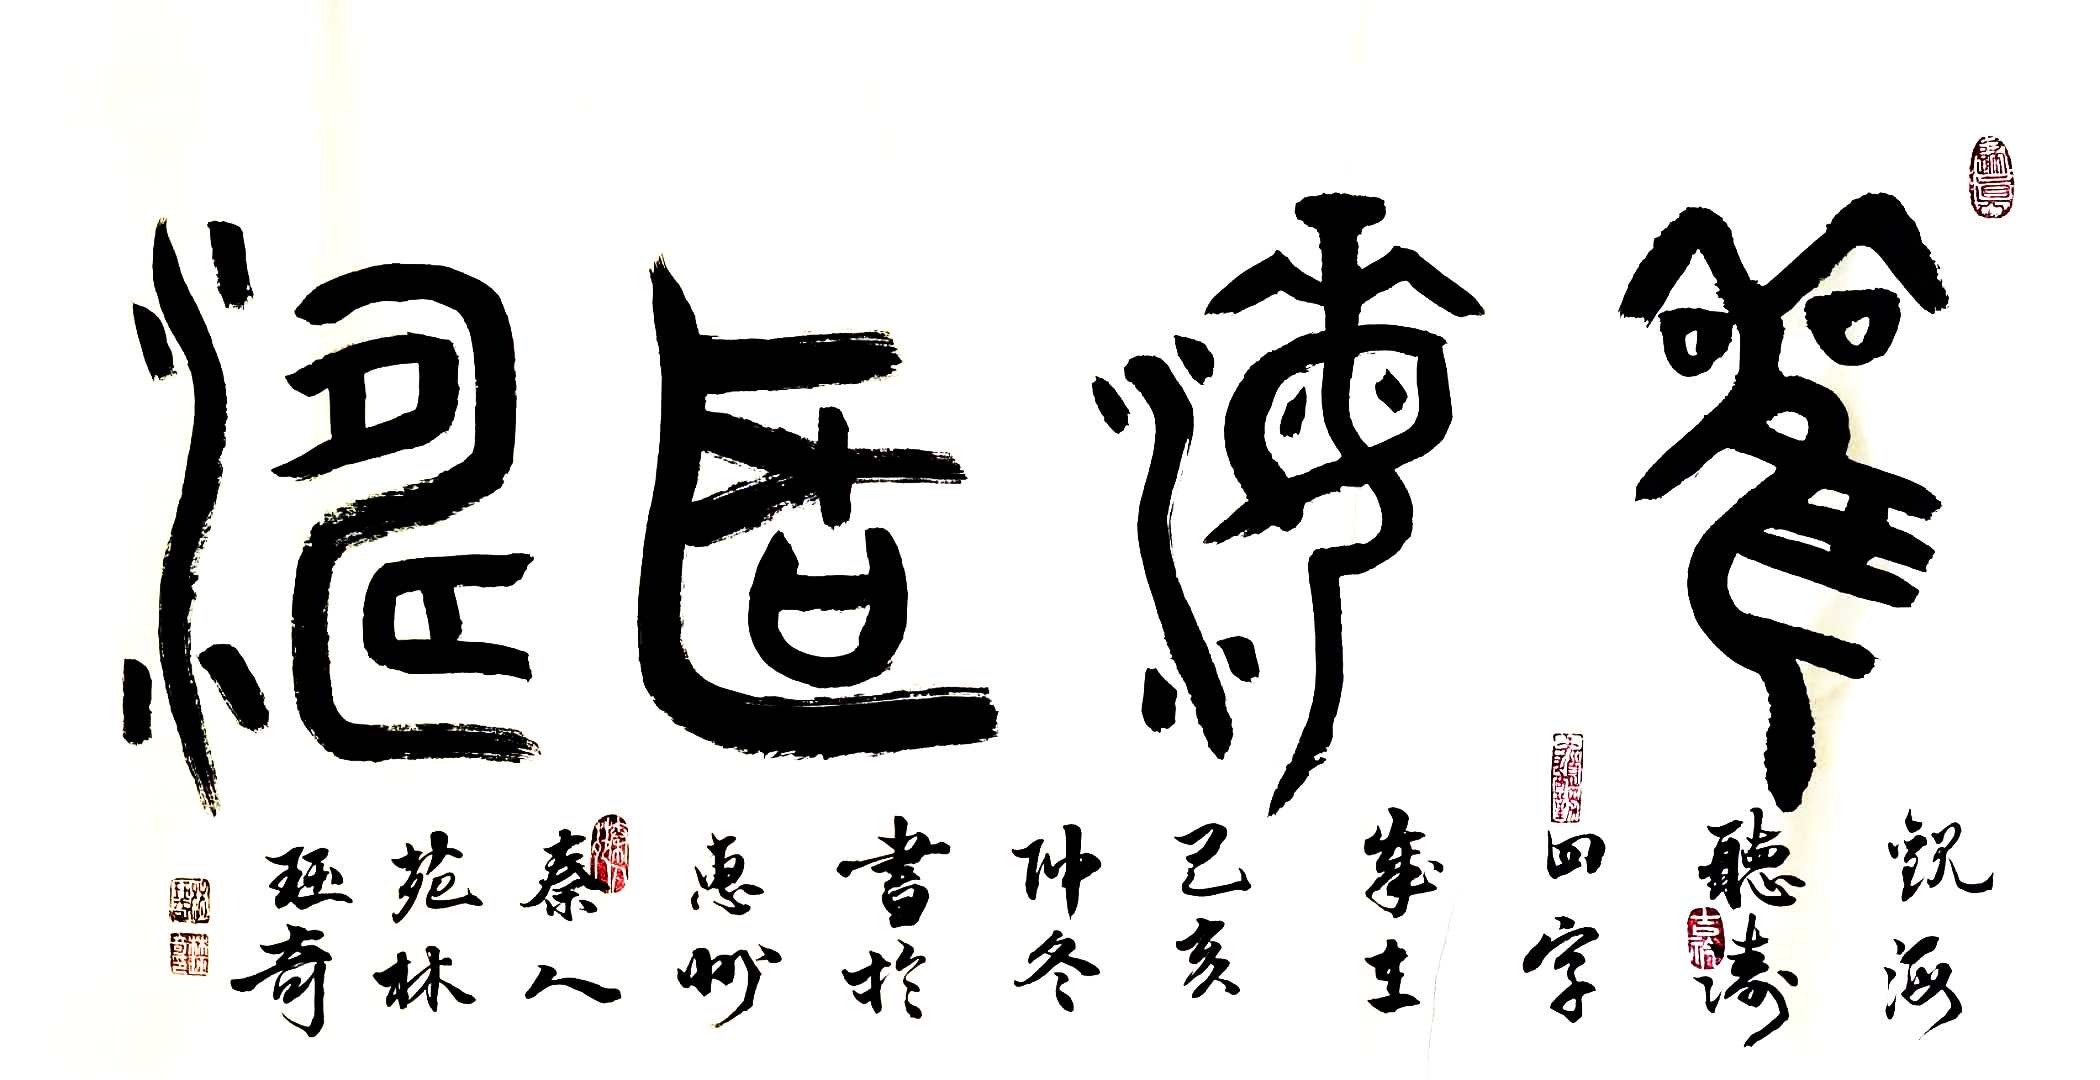 觀海聽濤
觀海
聽濤
四字
歲在
己亥
仲冬
書於
惠州
秦人
苑林
珏奇